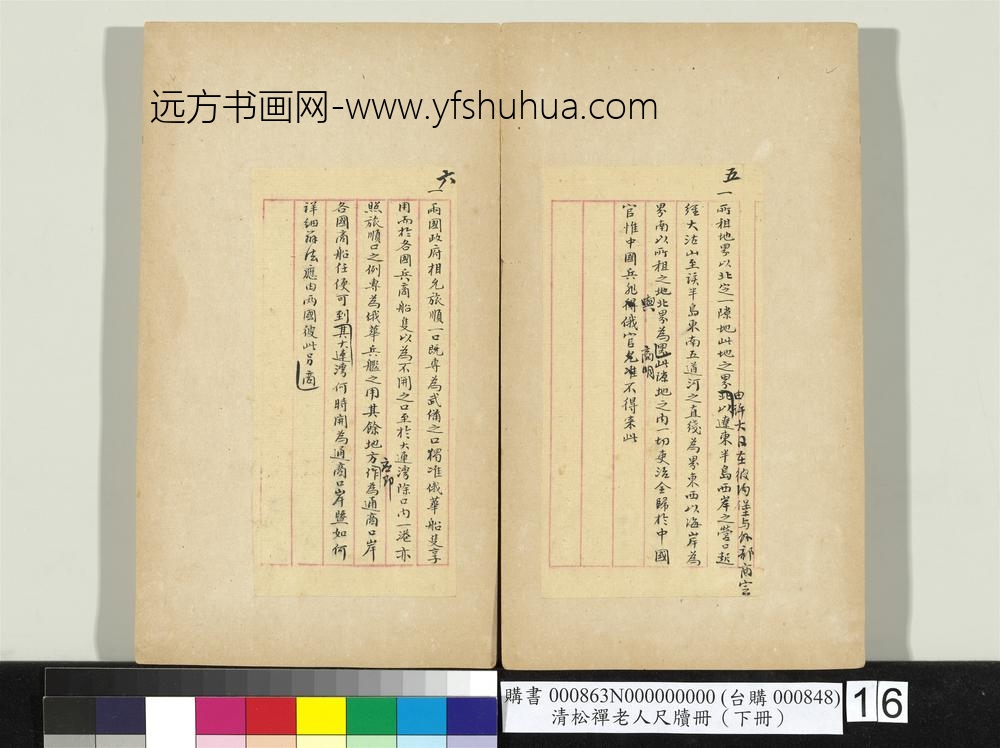 远方书画网-www.yfshuhua.com
五
一所租地界以北定一隙地此地之界北以遼東半島西岸之營口起
由許大臣在彼得堡与外部商定
經大沽山至該半島東南五道河之直綫為界東西以海岸為
界南以所租之地北界為界此隙地之内一切吏治全歸於中國
官惟中國兵非與俄官商明不得来此
六
一兩國政府相允旅順一口既專為武備之口獨准俄華船隻享
用而於各國兵商船隻以為不開之口至於大連灣除口内一港亦
照旅順口之例專為俄華兵艦之用其餘地方作為通商口岸
各國商船任便可到其大連灣何時開為通商口岸暨如何
詳細辦法應由兩國彼此另商
購書 000863N000000000 (台購 000848)
清松禪老人尺牘冊（下冊）
16